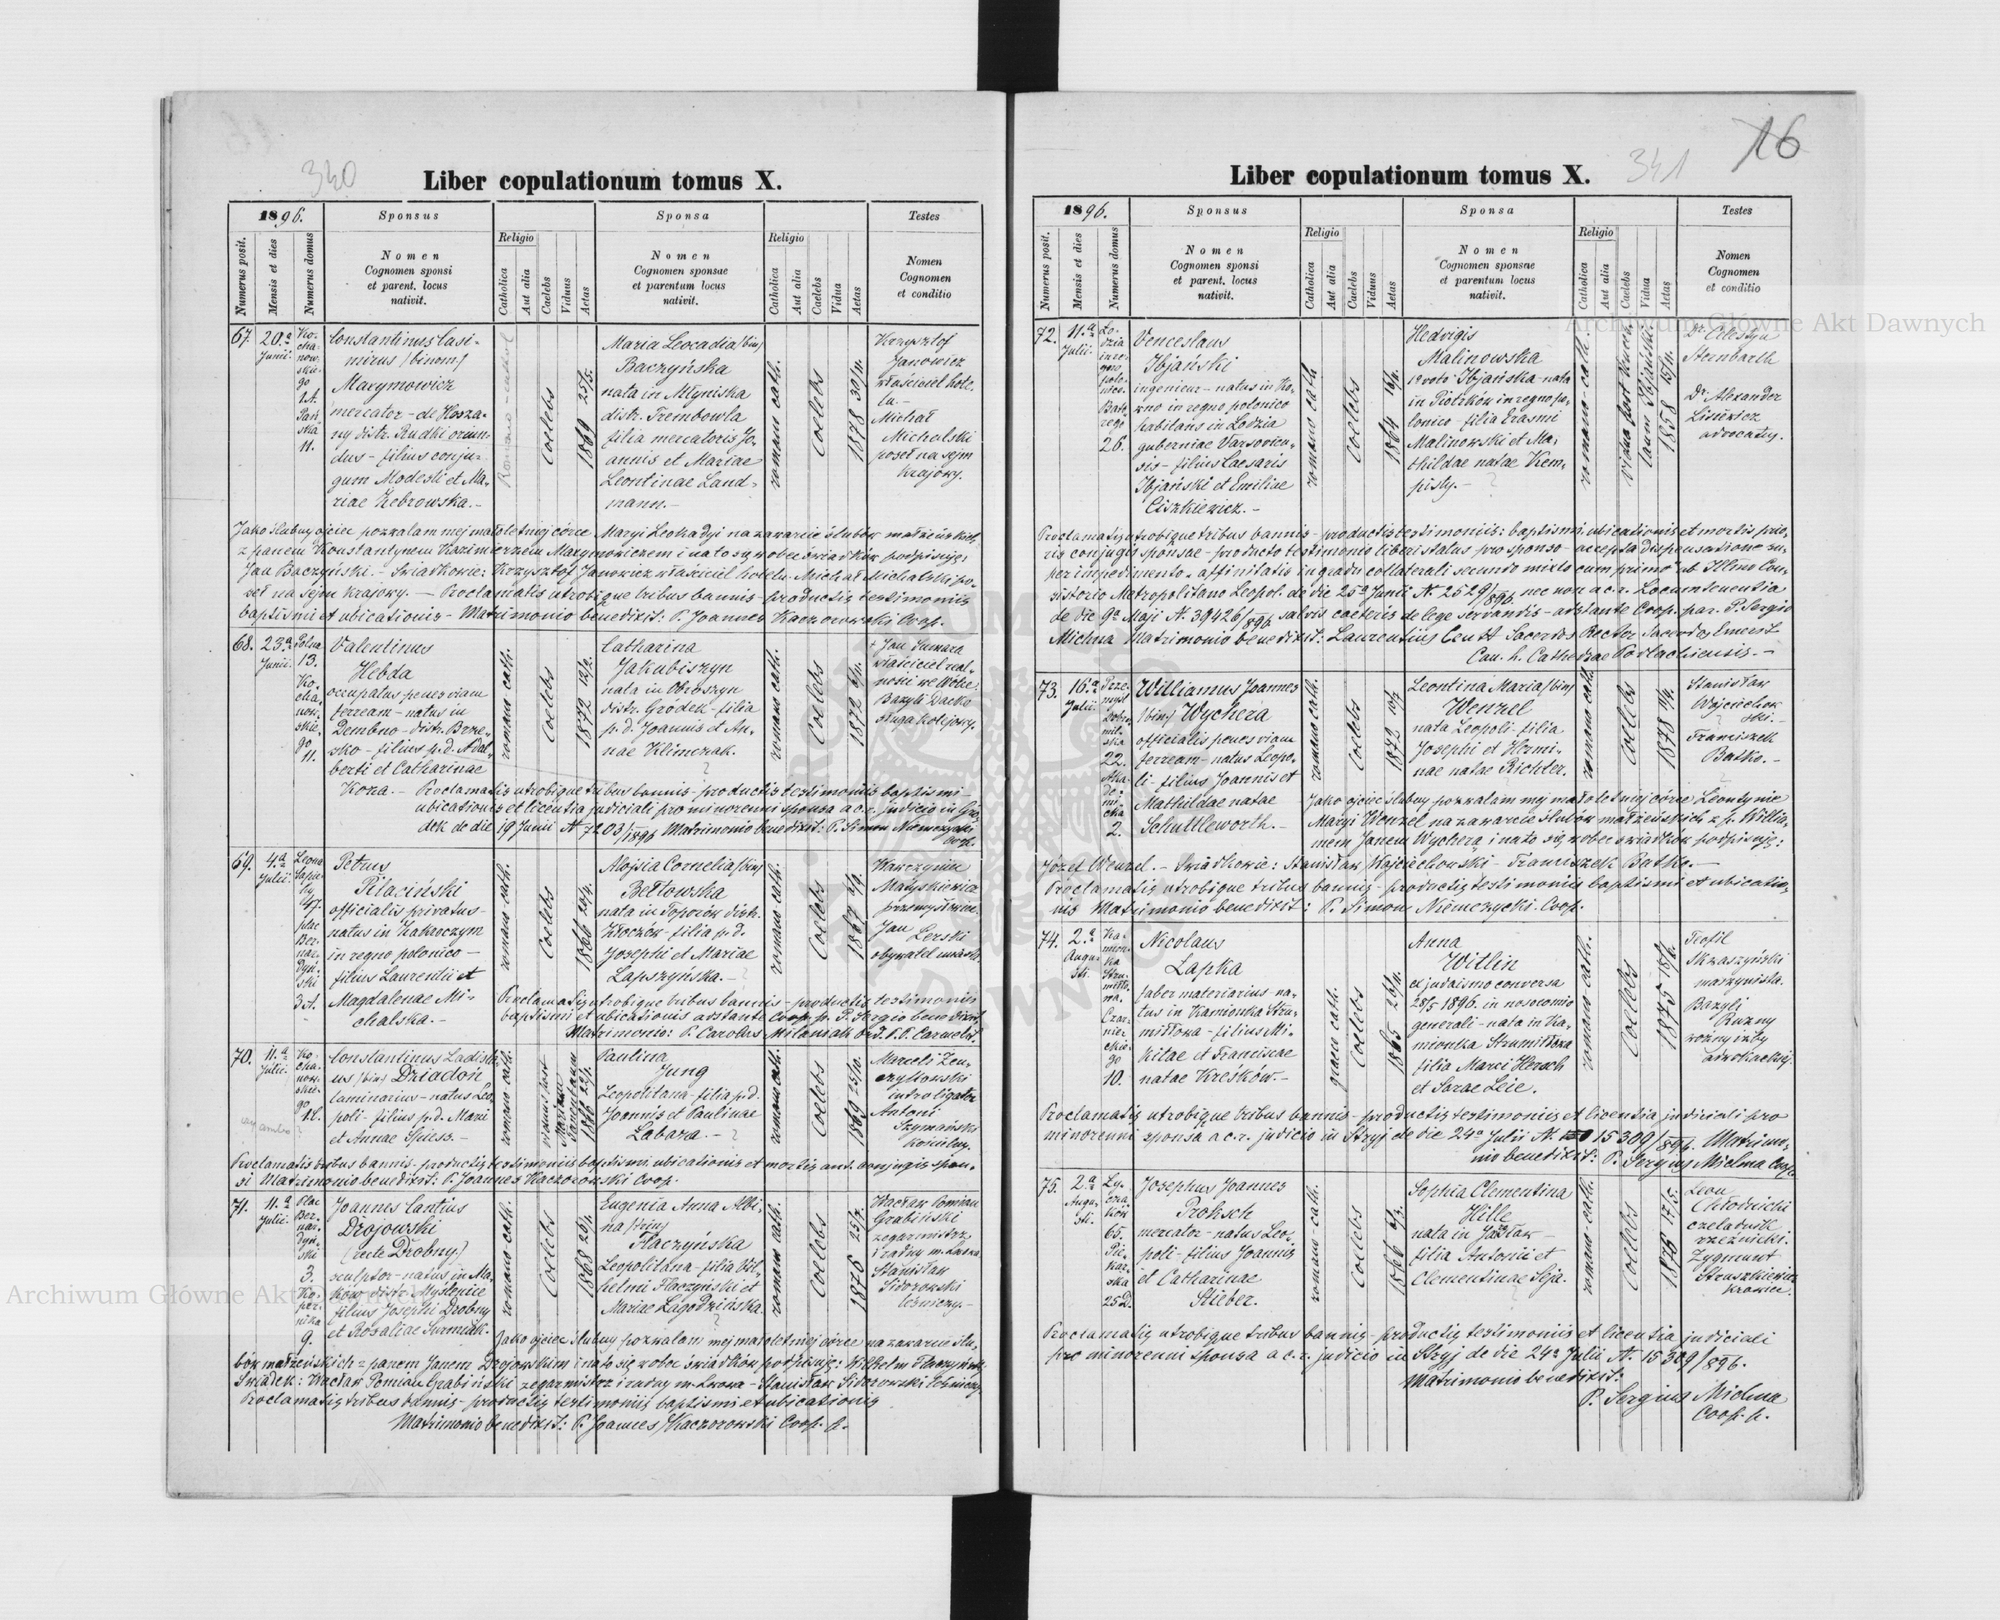 340
Liber copulationum tomus X.
1896.
Sponsus
Sponsa
Testes
Numerus posit.
Mensis et dies
Numerus domus
Nomen
Cognomen sponsi
et parent. locus
nativit.
Religio
Catholica
Aut alia
Caelebs
Viduus
Aetas
Nomen
Cognomen sponsae
et parentum locus
nativit.
Religio
Catholica
Aut alia
Caelebs
Vidua
Aetas
Nomen
Cognomen
et conditio
67.
20.a
Junii.
Ko-
cha-
now-
skie-
go
1A.
Pań-
ska
11.
Constantinus Casi-
mirus /binom/
Marymowicz
mercator - de Hosza-
ny distr. Rudki oriun-
dus - filius conju-
gum Modesti et Ma-
riae Zebrowska. -
Coelebs
1869 25/5.
Maria Leocadia /bin/
Baczyńska
nata in Młyniska
distr. Trembowla
filia mercatoris Jo-
annis et Mariae
Leontinae Land-
mann. -
romano cath.
Coelebs
1878 30/11.
Krzysztof
Janowicz
właściciel hote-
lu. -
Michał
Michalski
poseł na sejm
krajowy.
Jako ślubny ojciec pozwalam mej małoletniej córce Maryi Leokadyi na zawarcie ślubów małżeńskich
z panem Konstantynem Kazimierzem Marymowiczem i na to się wobec świadków podpisuję:
Jan Baczyński. - Świadkowie: Krzysztof Janowicz właściciel hotelu. Michał Michalski po-
seł na sejm krajowy. - Proclamatis utrobique tribus bannis - productis testimoniis
baptismi et ubicationis - Matrimonio benedixit: P. Joannes Kaczorowski Coop.
68.
23.a
Junii.
Polna
13.
Ko-
cha-
now-
skie-
go
11.
Valentinus
Hebda
occupatus penes viam
ferream - natus in
Dembno - distr. Brze-
sko - filius p.d. Adal-
berti et Catharinae
Koza. -
romano cath.
Coelebs
1872 12/2.
Catharina
Jakubiszyn
nata in Obroszyn
distr. Grodek - filia
p.d. Joannis et An-
nae Klimczak.
romano cath.
Coelebs
1872
Jan Sumara
właściciel real-
ności we Wolce
Bazyli Dacko
sługa kolejowy.
Proclamatis utrobique tribus bannis - productis testimoniis baptismi
ubicationis et licentia judiciali pro minorenni sponsa a c.r. judicio in Gró-
dek de die 19 Junii N. 7203/1896 Matrimonio benedixit: P. Simon Niemczycki
Coop.
69.
4.a
Julii.
Leona
Sapie-
hy
47.
plac
Ber-
nar-
dyń-
ski
3A.
Petrus
Pilaciński
officialis privatus -
natus in Zakroczym
in regno polonico -
filius Laurentii et
Magdalenae Mi-
chalska. -
romano cath.
Coelebs
1866
Aloisia Cornelia /bin/
Bełtowska
nata in Toporów distr.
Złoczów - filia p.d.
Josephi et Mariae
Lapszyńska. -
romano cath.
Coelebs
Wawrzyniec
Matyskiewicz
przemysłowiec.
Jan
Lerski
obywatel miasta.
Proclamatis utrobique tribus bannis - productis testimoniis
baptismi et ubicationis adstante Coop. p. P. Sergio benedixit
Matrimonio: P. Carolus Milaniak Ord. P.P. Carmelit.
70.
11.a
Julii.
Ko-
cha-
now-
skie-
go
42.
Constantinus Ladisla-
us /bin/ Dziadoń
laminarius - natus Leo-
poli - filius p.d. Mari
et Annae Spiess. -
romano cath.
viduus post
1866
Paulina
Jung
Leopolitana - filia p.d.
Joannis et Paulinae
Labaza. -
romano cath.
Coelebs
1869 25/10.
Marceli Zen-
czyltowski
introligator
Antoni
Szymański
kościelny.
Proclamatis tribus bannis - productis testimoniis baptismi ubicationis et mortis ant. conjugis spon-
si Matrimonio benedixit: P. Joannes Kaczorowski Coop.
71.
11.a
Julii.
Plac
Ber-
nar-
dyń-
ski
3.
Ko-
per-
nika
9.
Joannes Cantius
Drojowski
(recte Drobny)
sculptor - natus in Ma-
ków distr. Myślenice
filius Josephi Drobny
et Rosaliae Surmiak.
romano cath.
Coelebs
1868
Eugenia Anna Albi-
na /trin/
Flaczyńska
Leopolitana - filia Wil-
helmi Flaczyński et
Mariae Łagodzińska.
romano cath.
Coelebs
1876 25/7.
Wacław Pomian
Grabiński
zegarmistrz
i radny m. Lwowa
Stanisław
Sidorowski
leśniczy. -
Jako ojciec ślubny pozwalam mej małoletniej córce na zawarcie ślu-
bów małżeńskich z panem Janem Drojowskim i na to się wobec świadków podpisuję: Wilhelm Flaczyński
Świadek: Wacław Pomian Grabiński zegarmistrz i radny m. Lwowa - Stanisław Sidorowski leśniczy.
Proclamatis tribus bannis - productis testimoniis baptismi et ubicationis
Matrimonio benedixit: P. Joannes Kaczorowski Coop. p.
16
341
Liber copulationum tomus X.
1896.
Sponsus
Sponsa
Testes
Numerus posit.
Mensis et dies
Numerus domus
Nomen
Cognomen sponsi
et parent. locus
nativit.
Religio
Catholica
Aut alia
Caelebs
Viduus
Aetas
Nomen
Cognomen sponsae
et parentum locus
nativit.
Religio
Catholica
Aut alia
Caelebs
Vidua
Aetas
Nomen
Cognomen
et conditio
72.
11.a
Julii.
Ło-
dzia
in re-
gno
polo-
nico.
Bato-
rego
26.
Venceslaus
Ibjański
ingenieur - natus in Ko-
wno in regno polonico
habitans in Łodzia
guberniae Varsovien-
sis - filius Caesaris
Ibjański et Emiliae
Ciszkiewicz. -
romano cath.
Coelebs
1864
Hedvigis
Malinowska
1o voto Ibjańska - nata
in Piotrków in regno po-
lonico - filia Erasmi
Malinowski et Ma-
thildae natae Kem-
pisty. -
romano - cath.
1858 15/10.
Dr. Celestyn
Sternbarth
Dr. Alexander
Lisiewicz
adwokaty.
Proclamatis utrobique tribus bannis - productis testimoniis: baptismi, ubicationis et mortis prio-
ris conjugis sponsae - producto testimonio liberi status pro sponso - accepta dispensatione su-
per impedimento affinitatis in gradu collaterali secundo mixto cum primo ab Illmo Con-
sistorio Metropolitano Leopol. de die 25a Junii N. 2529/896 nec non a c.r. Locumtenentia
de die 9a Maji N. 39426/896 salvis caeteris de lege servandis - adstante Coop. par. P. Sergio
Michna Matrimonio benedixit: Laurentius Centt Sacerdos Rector Sacerdos Emerit
Can. h. Cathedrae Podlachiensis. -
73.
16.a
Julii.
Prze-
myśl
Dobro-
mil-
ska
22.
Aka-
de-
mi-
cka
2.
Williamus Joannes
/bin/ Wychera
officialis penes viam
ferream - natus Leopo-
li - filius Joannis et
Mathildae natae
Schuttleworth. -
romano cath.
Coelebs
1872
Leontina Maria /bin/
Wenzel
nata Leopoli - filia
Josephi et Hermi-
nae natae Richter.
romano cath.
Coelebs
1878
Stanisław
Wojciechow-
ski. -
Franciszek
Batko. -
Jako ojciec ślubny pozwalam mej małoletniej córce Leontynie
Maryi Wenzel na zawarcie ślubów małżeńskich z p. Willia-
mem Janem Wycherą i na to się wobec świadków podpisuję:
Józef Wenzel. - Świadkowie: Stanisław Wojciechowski - Franciszek Batko. -
Proclamatis utrobique tribus bannis - productis testimoniis baptismi et ubicatio-
nis Matrimonio benedixit: P. Simon Niemczycki Coop.
74.
2.a
Augu-
sti.
Ka-
mion-
ka
Stru-
miło-
wa.
Czar-
niec-
kie-
go
10.
Nicolaus
Łapka
faber materiarius na-
tus in Kamionka Stru-
miłłowa - filius Mi-
kitae et Franciscae
natae Kreśków. -
graeco cath.
Coelebs
1865
Anna
Witlin
ex judaismo conversa
28/5 1896. in nosocomio
generali - nata in Ka-
mionka Strumiłłowa
filia Marci Hersch
et Sarae Leie.
romano cath.
Coelebs
1875
Teofil
Skwaszyński
maszynista.
Bazyli
Ruzny
woźny izby
adwokackiej.
Proclamatis utrobique tribus bannis - productis testimoniis et licentia judiciali pro
minorenni sponsa a c.r. judicio in Stryj de die 24a Julii N. 15309/896. Matrimo-
nio benedixit: P. Sergius Michna Coop.
75.
2.a
Augu-
sti.
Ły-
cza-
ków
65.
Pie-
kar-
ska
25D.
Josephus Joannes
Proksch
mercator - natus Leo-
poli - filius Joannis
et Catharinae
Stieber.
romano - cath.
Coelebs
1866
Sophia Clementina
Hille
nata in Jasław -
filia Antonii et
Clementinae Seja.
romano - cath.
Coelebs
1876 17/5.
Leon
Chłodnicki
czeladnik
rzeźnicki.
Zygmunt
Struszkiewicz
krawiec.
Proclamatis utrobique tribus bannis - productis testimoniis et licentia judiciali
pro minorenni sponsa a c.r. judicio in Stryj de die 24a Julii N. 15309/896.
Matrimonio benedixit:
P. Sergius Michna
Coop. p.
Archiwum Główne Akt Dawnych